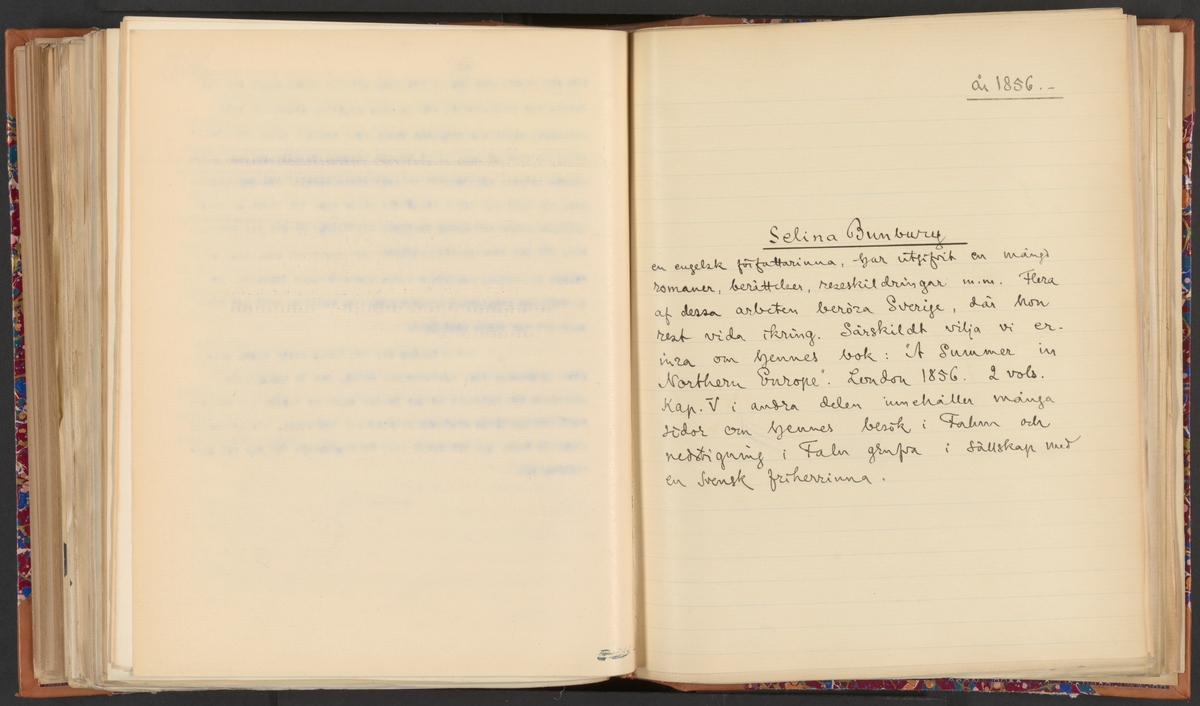 år 1856.-
Selina Bunbury
en engelsk författarinna, har utgifvit en mängd
romaner, berättelser, reseskildringar m.m. Flera
af dessa arbeten beröra Sverige, där hon
rest vida ikring. Särskildt vilja vi er-
inra om hennes bok: "A Summer in
Northern Europe". London 1856. 2 vols.
Kap. V i andra delen innehåller många
sidor om hennes besök i Falun och
nedstigning i Falu grufva i sällskap med
en Svensk friherrinna.